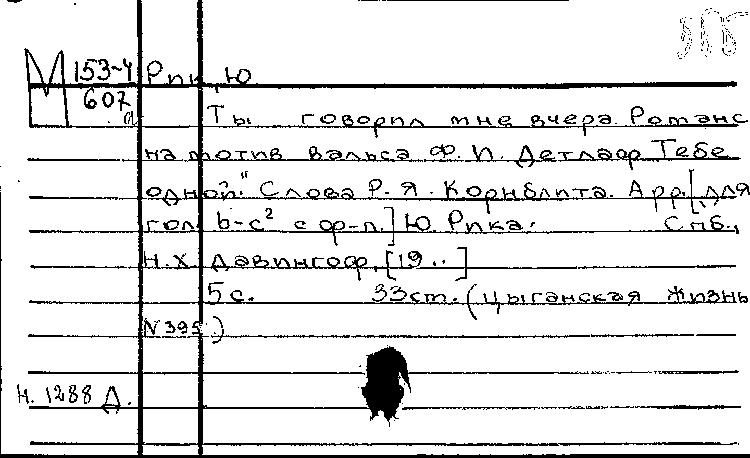 М 153-4 Рпк, Ю
607
Ты говорил мне вчера. Романс
на мотив вальса Ф. И. Детлаф „Тебе
одной." Слова Р. Я. Корнблита. Арр[.для
гол. b-c² с ф-п.] Ю. Рпка. Спб.,
Н.Х. Давингоф, [19..]
5 с. 33 см. (Цыганская жизнь
N 395.)
Н. 1288 Д.